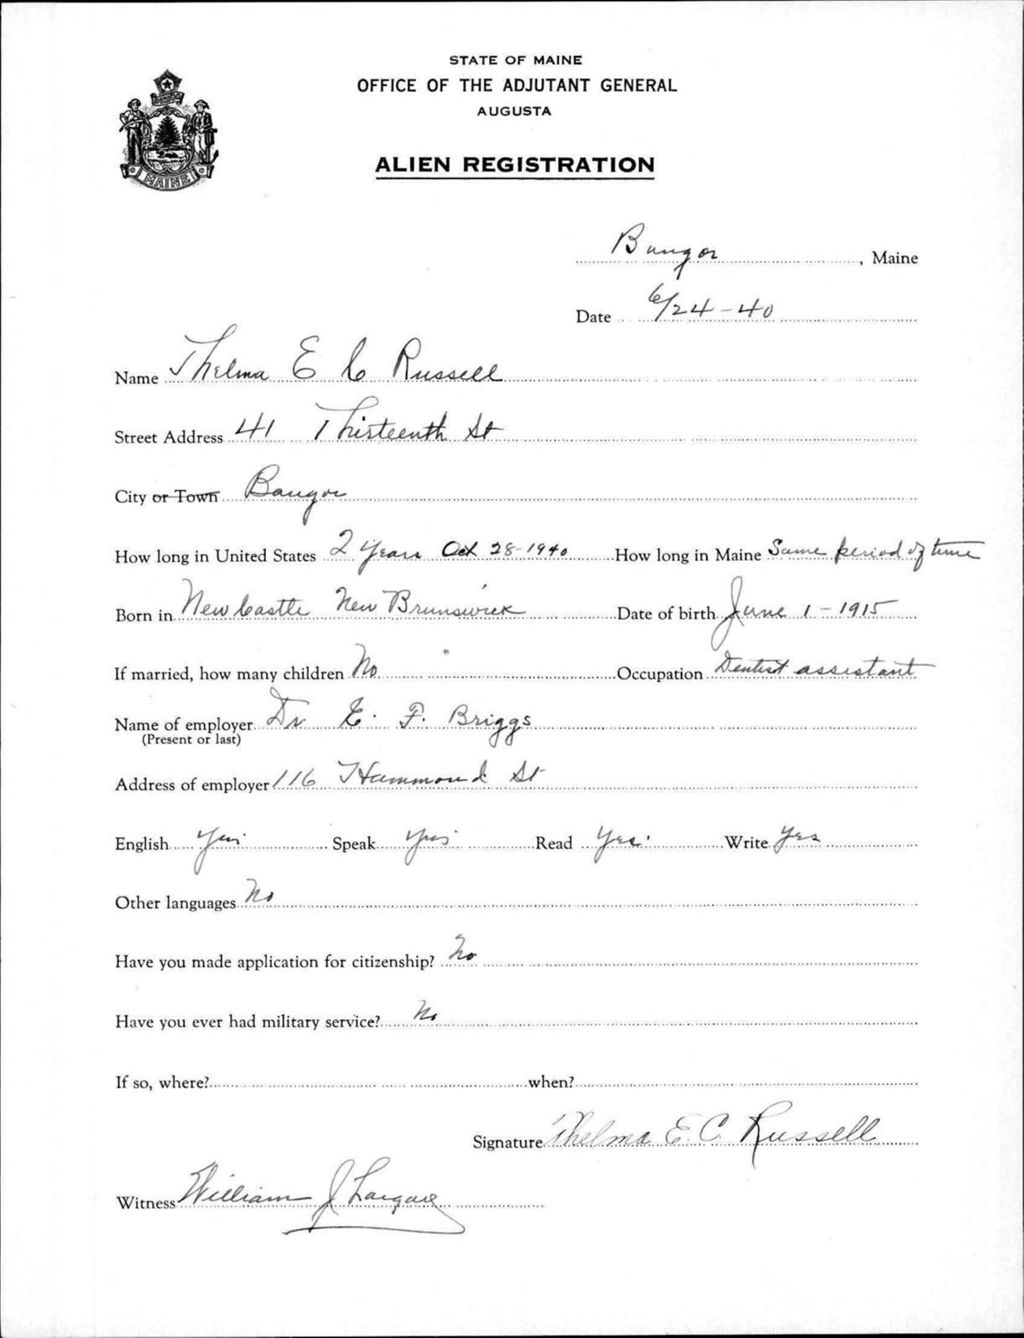 STATE OF MAINE
OFFICE OF THE ADJUTANT GENERAL
AUGUSTA
ALIEN REGISTRATION
MAINE
Bangor, Maine
Date 6/24-40
Name Thelma E C Russell
Street Address 41 Thirteenth St
City or Town Bangor
How long in United States 2 Years Oct 28-1940 How long in Maine Same period of time
Born in New Castle New Brunswick Date of birth June 1-1915
If married, how many children No Occupation Dentist assistant
Name of employer Dr E. F. Briggs
(Present or last)
Address of employer 116 Hammond St
English Yes Speak Yes Read Yes Write Yes
Other languages No
Have you made application for citizenship? No
Have you ever had military service? No
If so, where? when?
Signature Thelma E. C. Russell
Witness William J